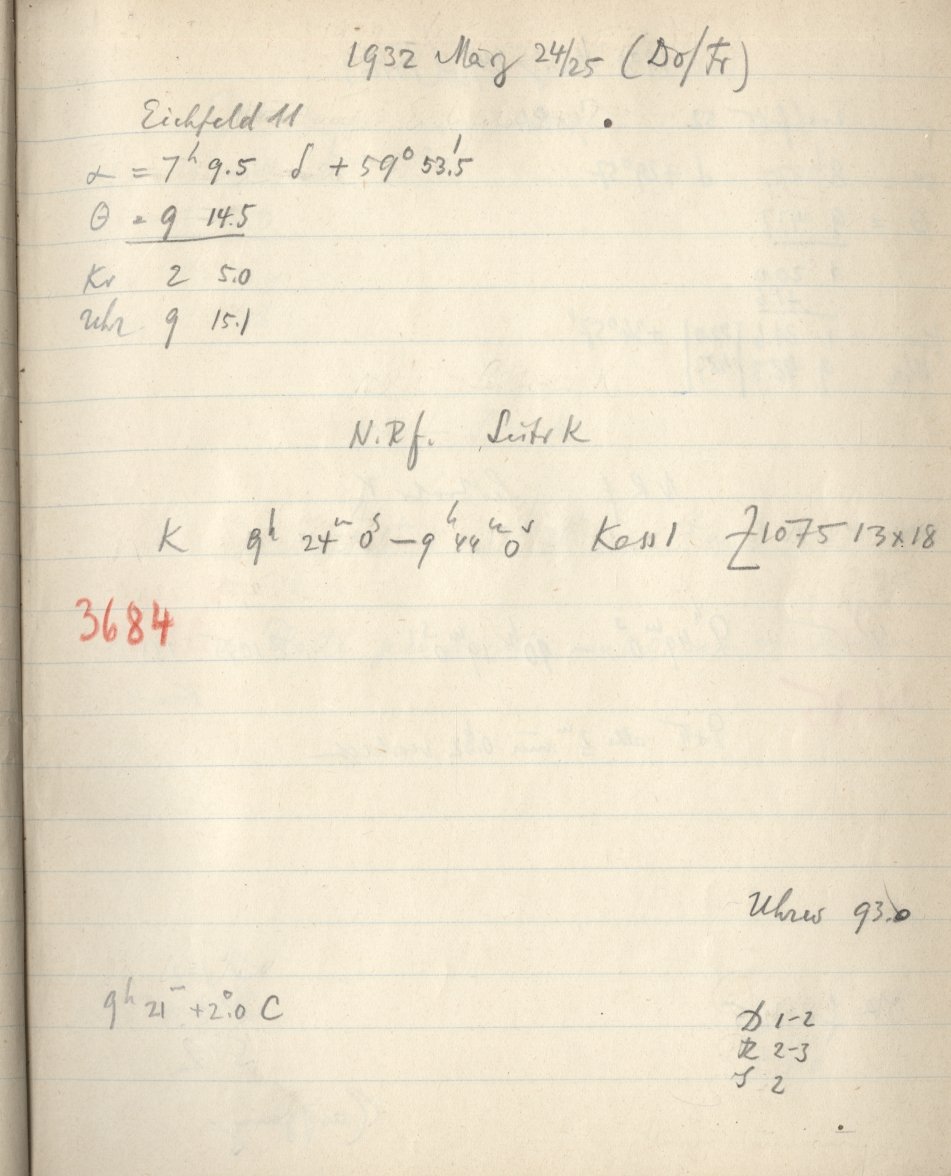 1932 März 24/25 (Do/Fr)
Eichfeld 11
α = 7ʰ 9.5 δ + 59° 53.'5
θ = 9 14.5
Kr 2 5.0
Uhr 9 15.1
N.Rf.
K 9ʰ 24ᵐ 0ˢ – 9ʰ 44ᵐ 0ˢ Kass 1 Z 1075 13x18
3684
93.0
9ʰ 21ᵐ +2°.0 C
D 1-2
R 2-3
S 2